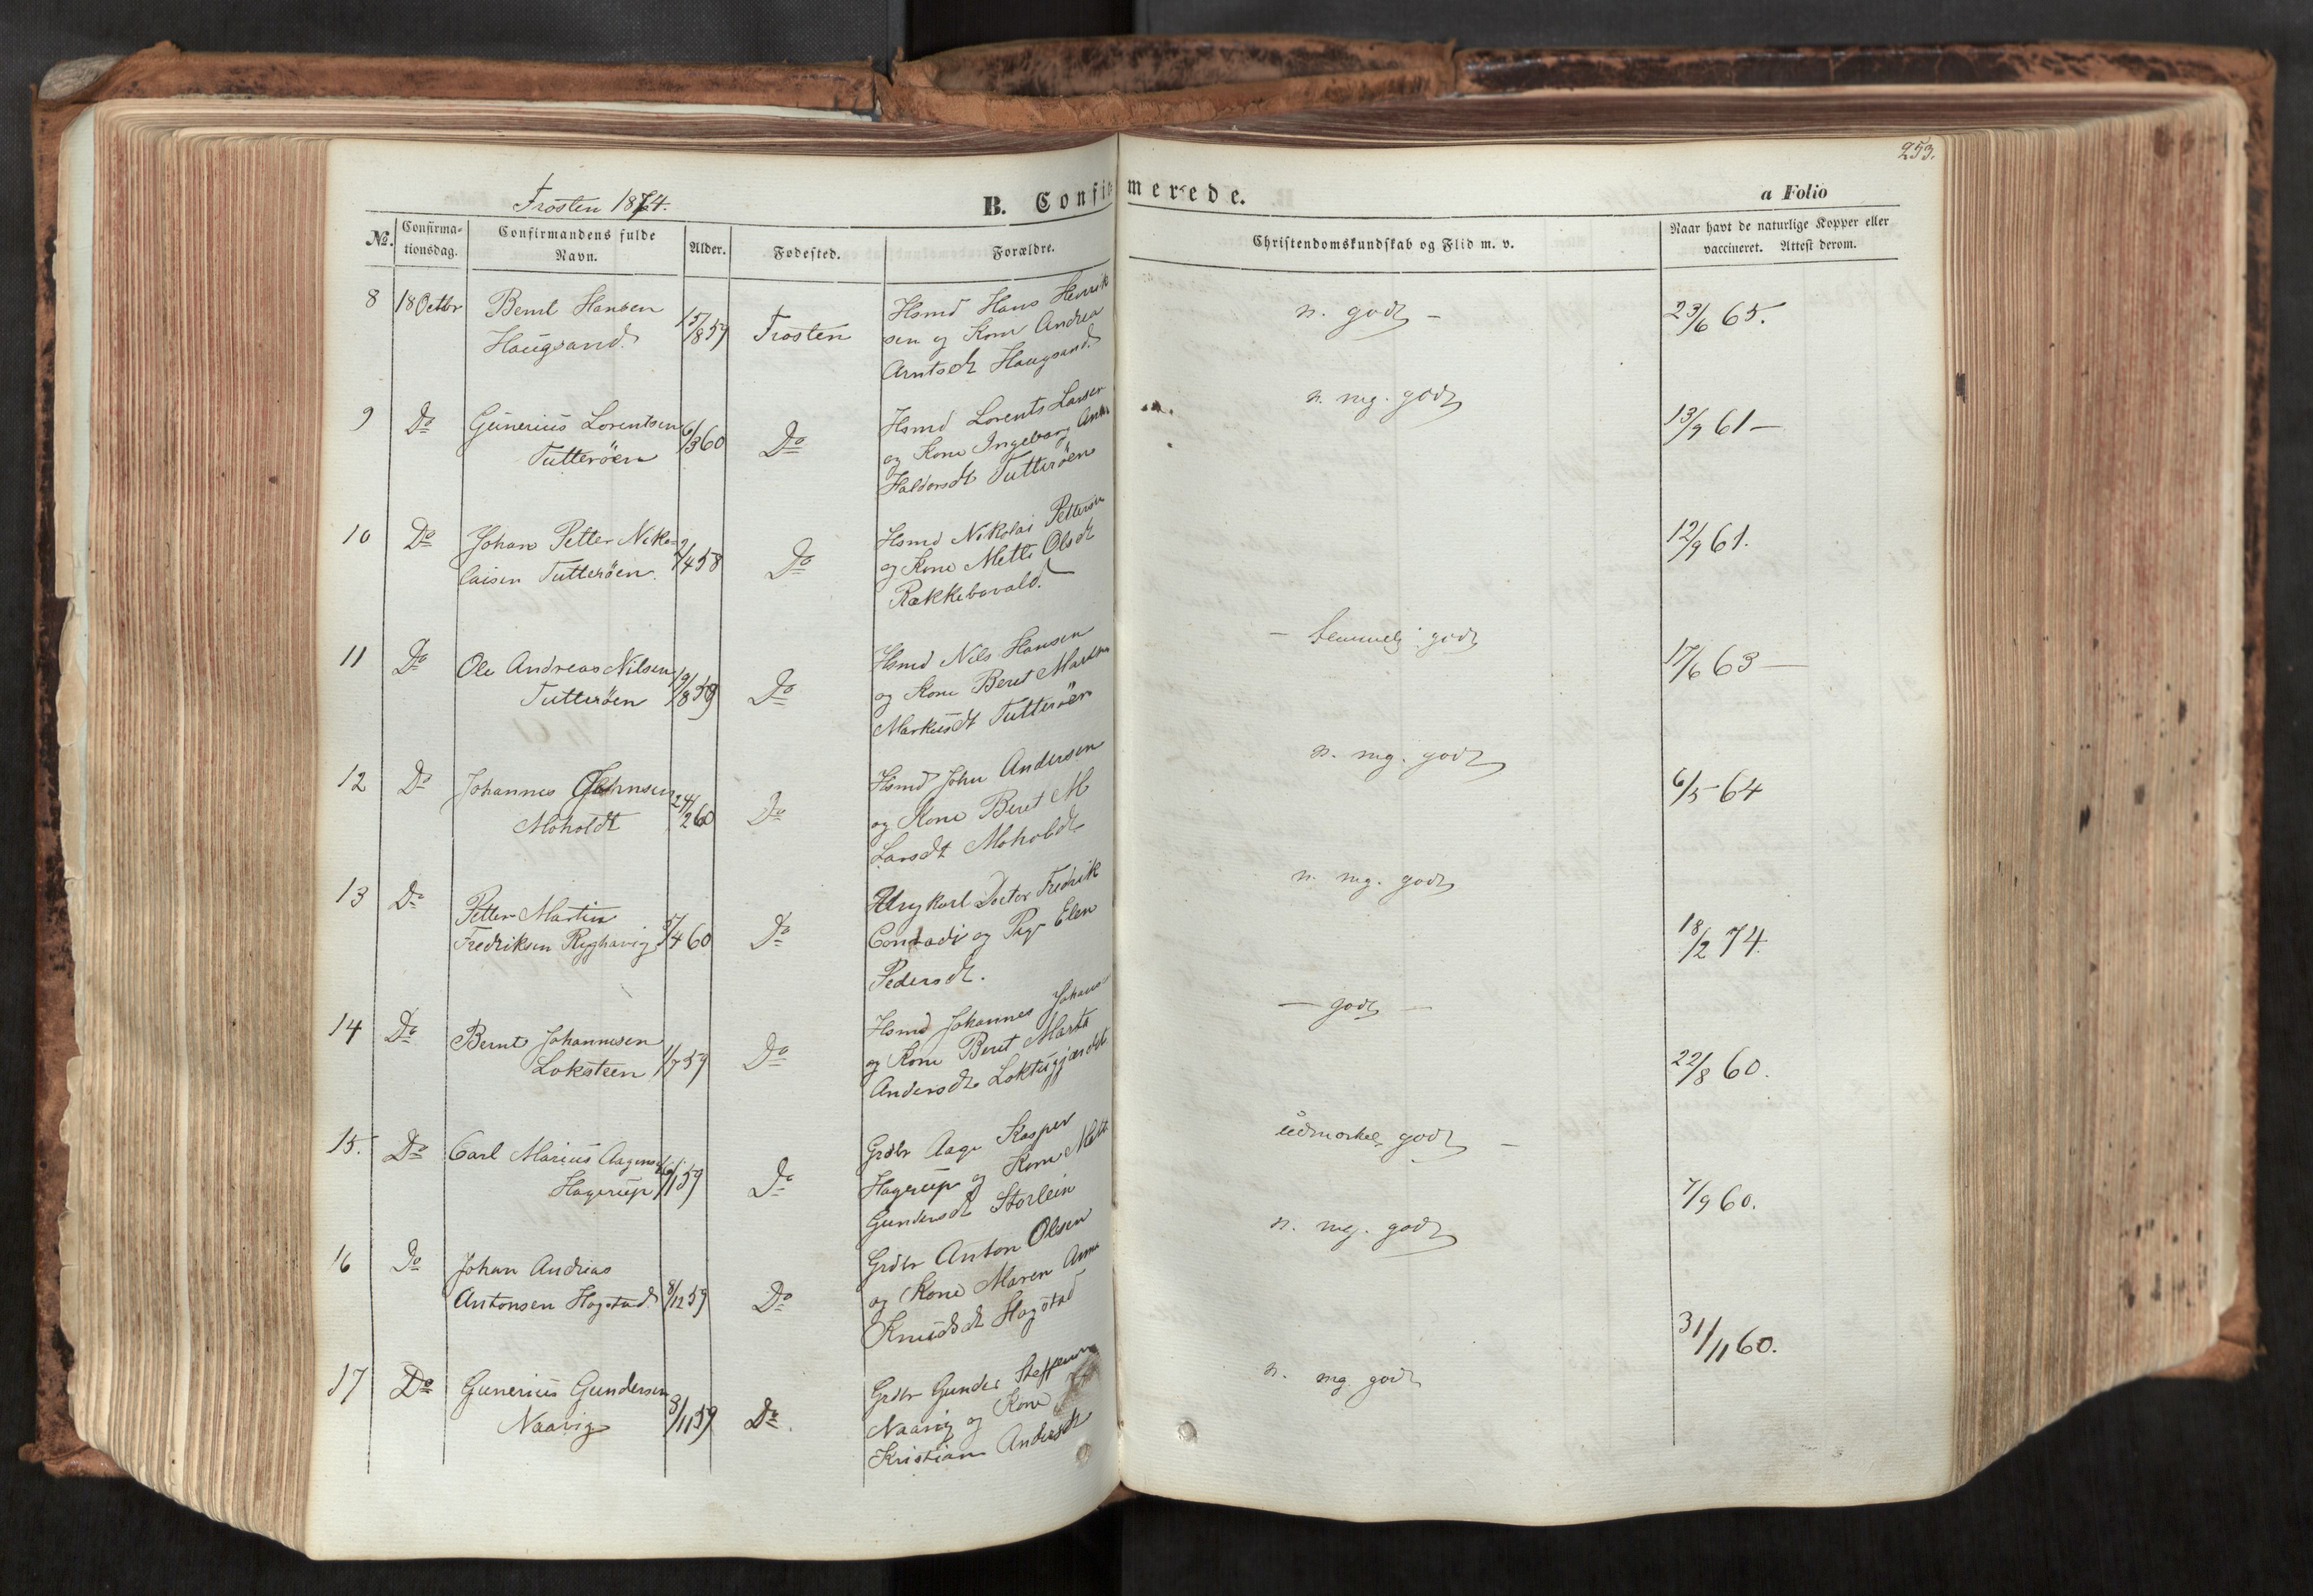 253.
Frosten 1874.
B. Confirmerede.
a Folio
No.
Confirma-
tionsdag.
Confirmandens fulde
Navn.
Alder.
Fødested.
Forældre.
Christendomskundskab og Flid m. v.
Naar havt de naturlige Kopper eller
vaccineret. Attest derom.
8 18 Octbr Bernt Hansen
Haugsand.
15/8 59 Frosten
Hsmd Hans Henrik
sen og Kone Andrea
Arntsdt Haugsand.
n. godt -
23/6 65.
9 Do Gunerius Lorentsen
Tutterøen
6/3 60 Do
Hsmd Lorents Larsen
og Kone Ingeborg Anna
Haldorsdt Tutterøen
n. mg. godt
13/9 61 -
10 Do Johan Petter Niko-
laisen Tutterøen.
2/4 58 Do
Hsmd Nikolai Pettersen
og Kone Mette Olsdt
Rækkebovald.
12/9 61.
11 Do Ole Andreas Nilsen
Tutterøen
19/8 59 Do
Hsmd Nils Hansen
og Kone Beret
Markusdt Tutterøen
- temmelig godt
17/6 63 -
12 Do Johannes Johnsen
Moholdt
24/2 60 Do
Hsmd John Andersen
og Kone Beret M
Larsdt Moholdt
n. mg. godt
6/5 64
13 Do Petter Martin
Fredriksen Ryghavig
5/4 60 Do
Ungkarl Doctor Fredrik
Conradi og Pige Elen
Pedersdt.
n. mg. godt
18/2 74.
14 Do Bernt Johannesen
Loksteen
1/7 59 Do
Hsmd Johannes Johans
og Kone Beret Marta
Andersdt
- godt -
22/8 60.
15. Do Carl Marius Aagesen
Hagerup
16/1 59 Do
Grdbr Aage Kasper
Hagerup og Kone Mett
Gundersdt Storlein
udmærket godt -
7/9 60.
16 Do Johan Andreas
Antonsen Hogstad
8/12 59 Do
Grdbr Anton Olsen
og Kone Maren Anna
Knudsdt Hogstad
n. meg. godt
31/11 60.
17 Do Gunerius Gundersen
Naavig
3/11 59 Do.
Grdbr Gunder Steffensen
Naavig og Kone
Kristian Andersdt
n. mg. godt